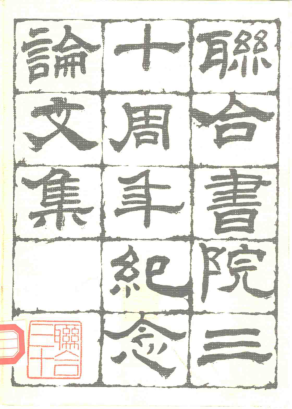 聯合書院三
十周年紀念
論文集
聯合
三十